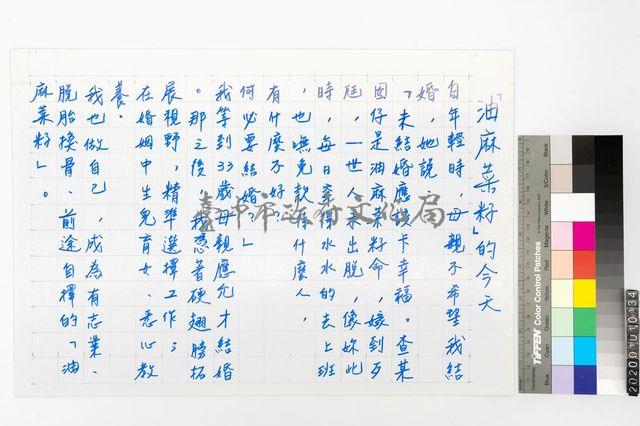 「油麻菜籽」的今天
自年輕時，母親不希望我結
婚，她說：
「未結婚應該卡幸福。查某
囡仔是油麻菜籽命，嫁到歹
尪，一世人未出脫，像妳此
時，每日水水的去上班
，也嘸免款待什麼人，
有什麼不好？
何必要結婚。」
我等到33歲母親應允才結婚
。那之後，我憑著硬翅膀拓
展視野，精準選擇工作；
在婚姻中生兒育女、悉心教
養。
我也做自己，成為有志業、
脫胎換骨、前途自擇的「油
麻菜籽」。
臺中市政府文化局
TIFFEN Color Control Patches
Blue
Cyan
Green
Yellow
Red
Magenta
White
3/Color
Black